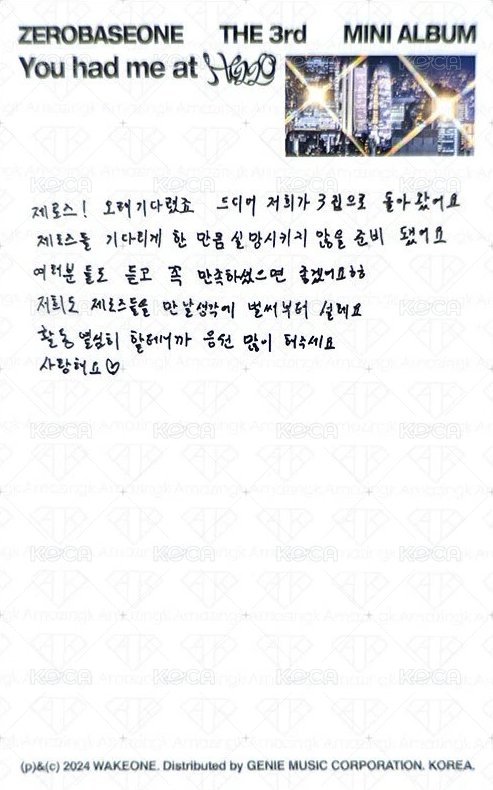 ZEROBASEONE THE 3rd MINI ALBUM
You had me at Hello
제로즈! 오래기다렸죠 드디어 저희가 3집으로 돌아왔어요
제로즈들 기다리게 한 만큼 실망시키지 않을 준비 됐어요
여러분들도 듣고 꼭 만족하셨으면 좋겠어요ㅎㅎ
저희도 제로즈들을 만날생각에 벌써부터 설레요
활동 열심히 할테니까 응원 많이 해주세요
사랑해요♡
KOCA
Amazingk
(p)&(c) 2024 WAKEONE. Distributed by GENIE MUSIC CORPORATION. KOREA.